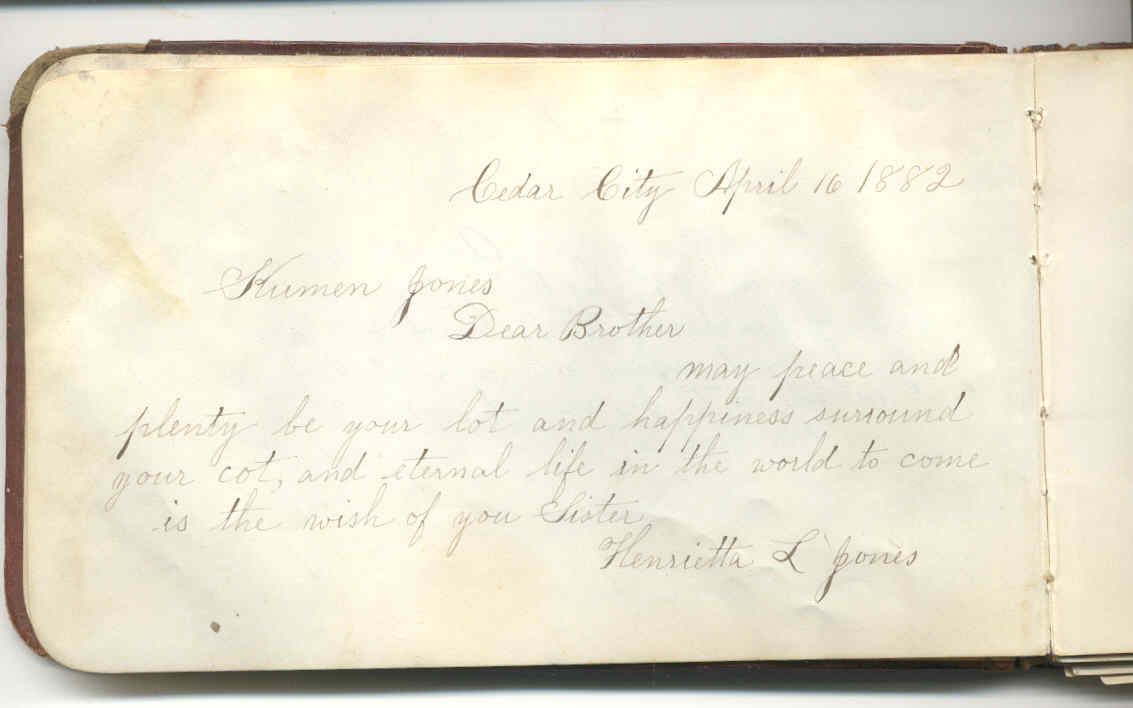 Cedar City April 16 1882
Kumen Jones
Dear Brother
may peace and
plenty be your lot and happiness surround
your cot, and eternal life in the world to come
is the wish of you Sister
Henrietta L Jones